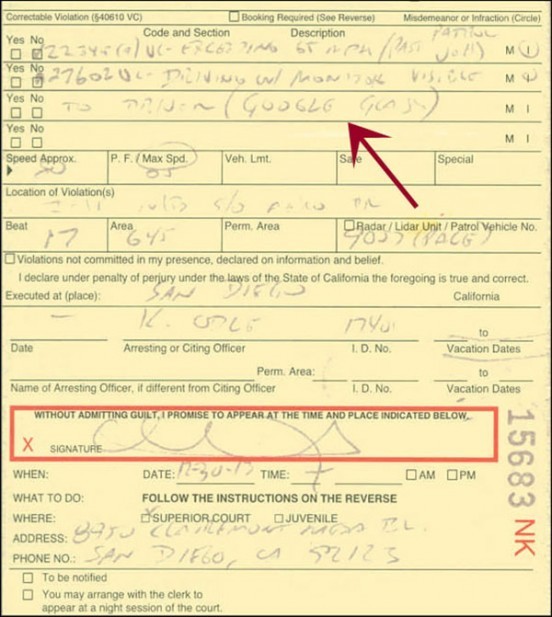 Correctable Violation (§40610 VC) Booking Required (See Reverse) Misdemeanor or Infraction (Circle)
Yes No Code and Section Description
22349(a) VC- EXCEEDING 65 MPH (PATROL M I
Yes No
27602 VC- DRIVING W/ MONITOR VISIBLE M I
Yes No
TO DRIVER (GOOGLE GLASS) M I
Yes No
M I
Speed Approx. P. F. / Max Spd. Veh. Lmt. Safe Special
65
Location of Violation(s)
Beat Area Perm. Area Radar / Lidar Unit / Patrol Vehicle No.
17 645 (PACE)
Violations not committed in my presence, declared on information and belief.
I declare under penalty of perjury under the laws of the State of California the foregoing is true and correct.
Executed at (place): SAN DIEGO California
K. to
Date Arresting or Citing Officer I. D. No. Vacation Dates
Perm. Area: to
Name of Arresting Officer, if different from Citing Officer I. D. No. Vacation Dates
WITHOUT ADMITTING GUILT, I PROMISE TO APPEAR AT THE TIME AND PLACE INDICATED BELOW.
X SIGNATURE
WHEN: DATE: TIME: AM PM
WHAT TO DO: FOLLOW THE INSTRUCTIONS ON THE REVERSE
WHERE: SUPERIOR COURT JUVENILE
ADDRESS: 8950 CLAIREMONT MESA BL.
PHONE NO.: SAN DIEGO, CA 92123
To be notified
You may arrange with the clerk to
appear at a night session of the court.
15683 NK